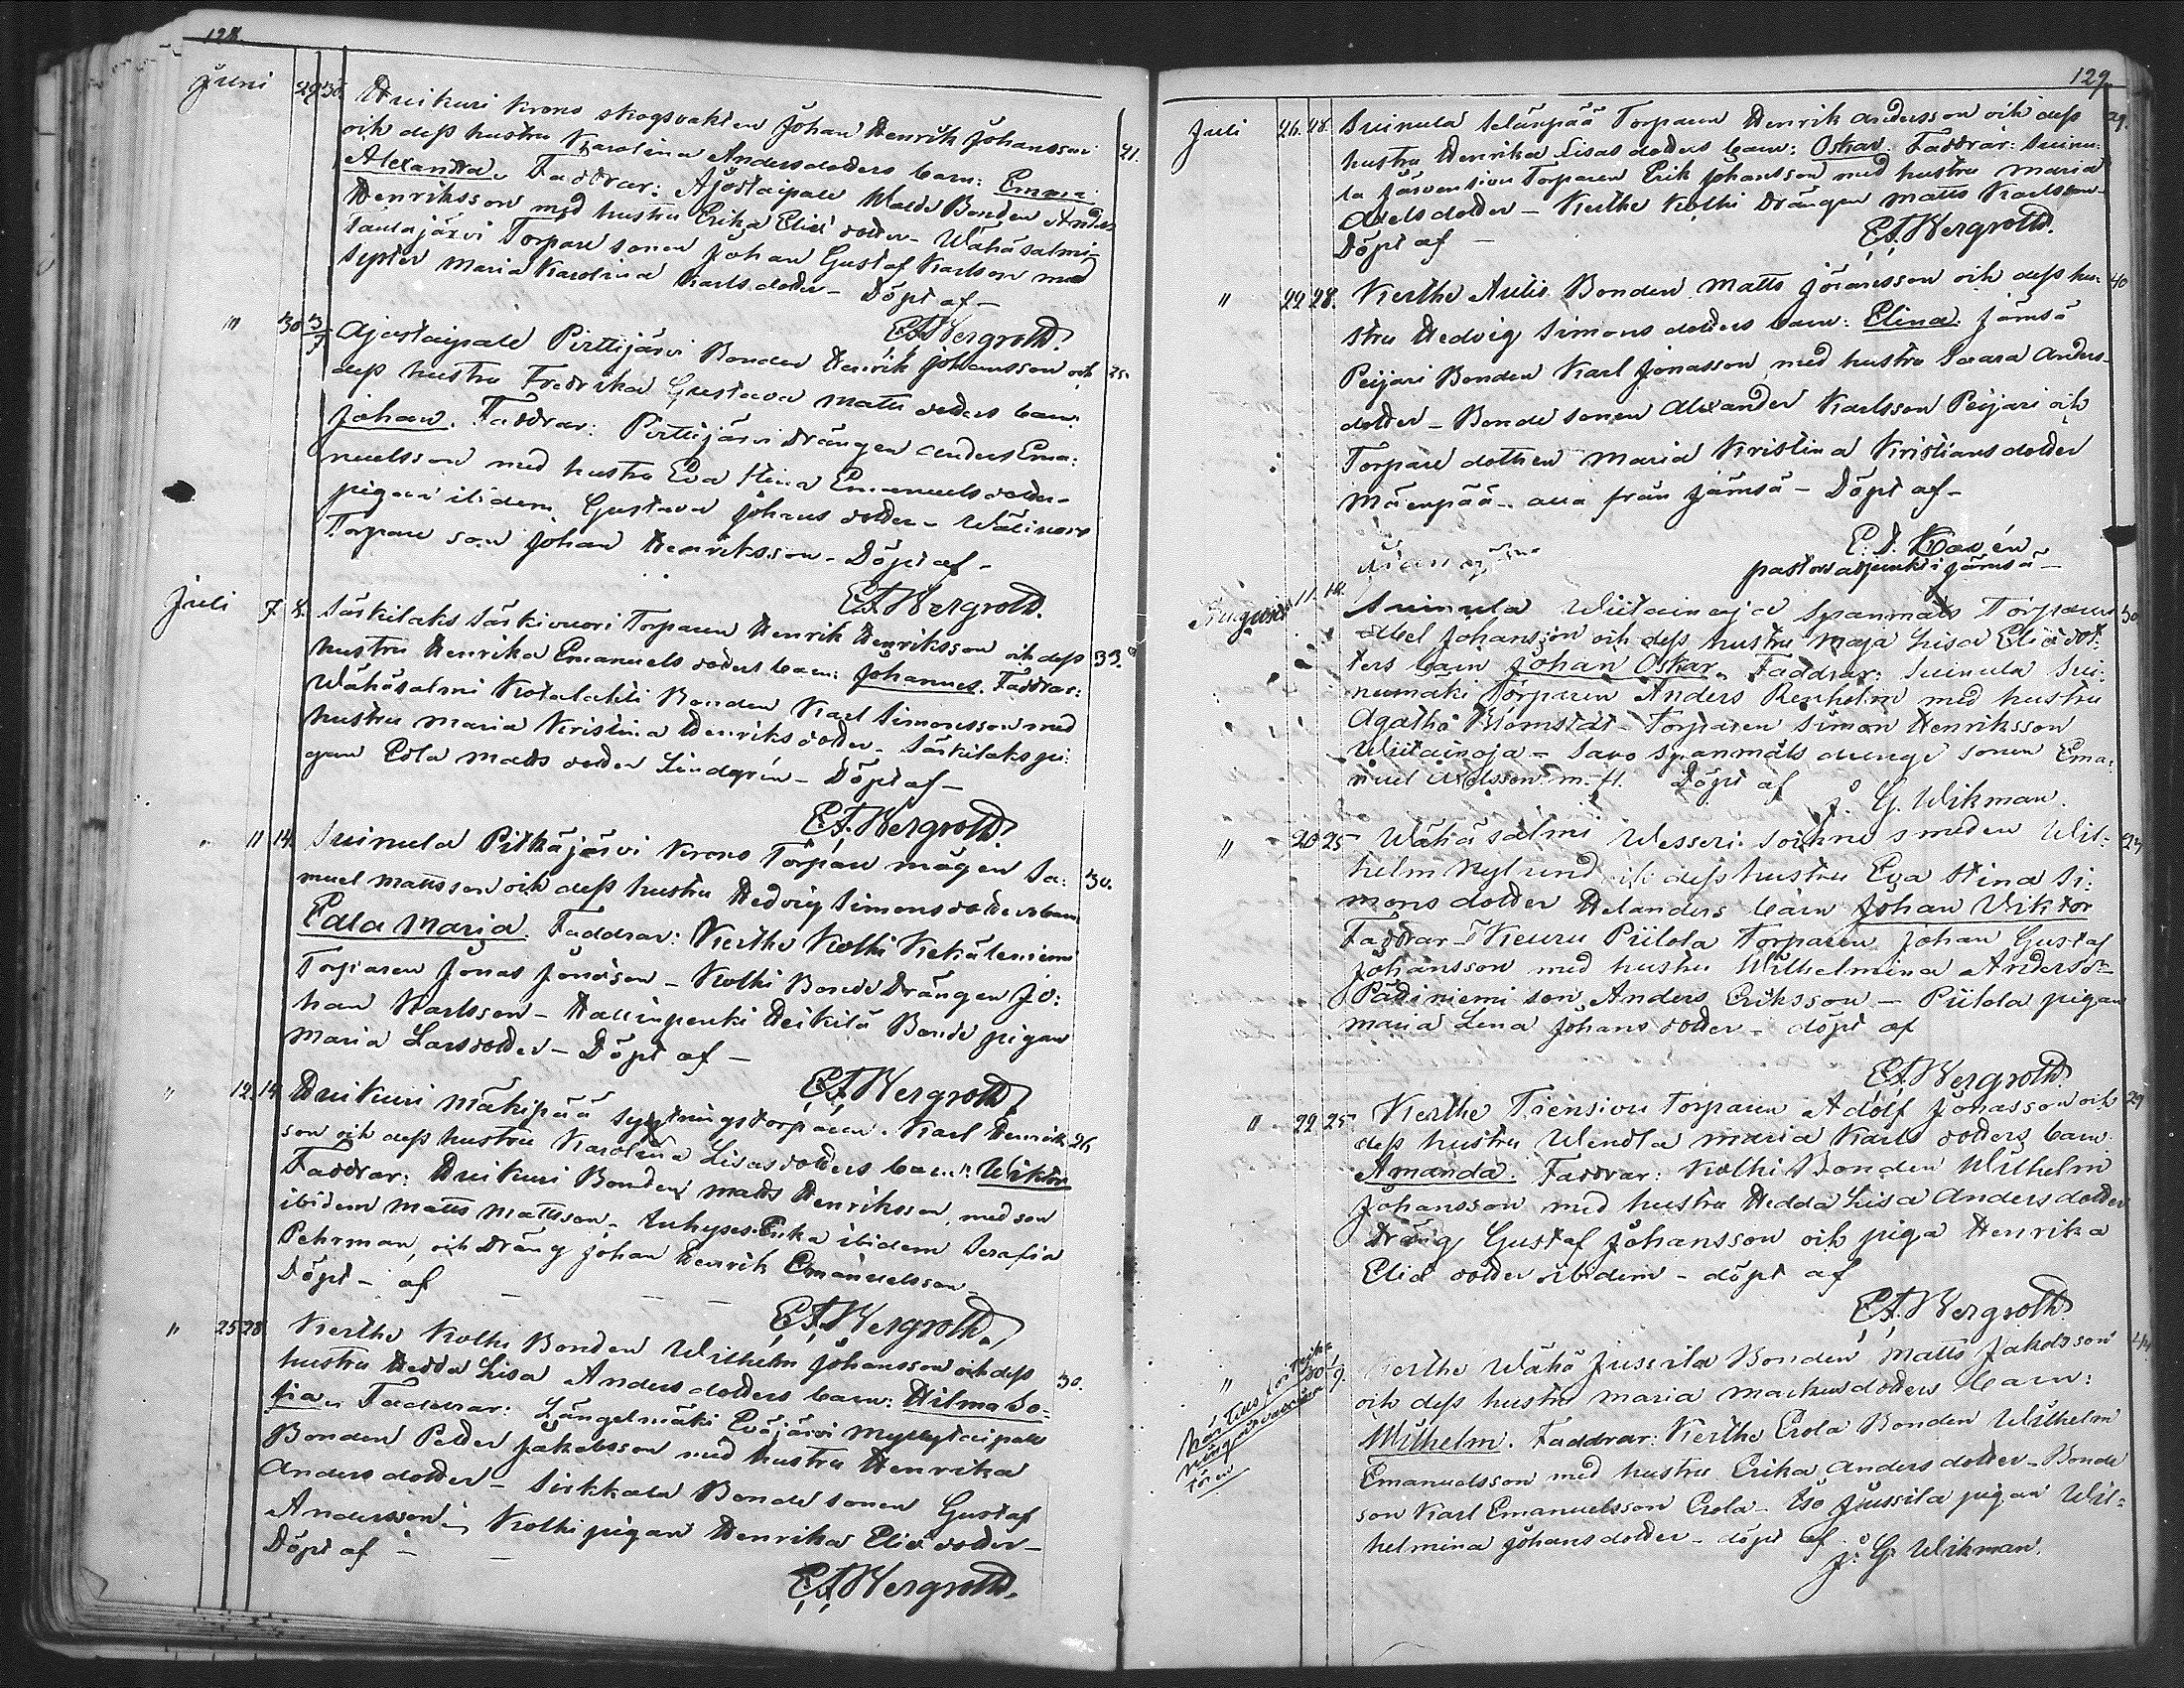 128.
Juni 29 30. Huikuri Krono skogsvakten Johan Henrik Johansson
och dess hustru Karolina Andersdotters barn: Emma 21.
Alexandra. Faddrar: Ajostaipale Bonden Anders
Henriksson med hustru Erika Eliædotter - Wähäsalmi
Taulajärvi Torpare sonen Johan Gustaf Karlson med
syster Maria Karolina Karlsdotter - Döpt af -
E.F. Bergroth.
" 30 3/7 Ajostaipale Pirttijärvi Bonden Henrik Johansson och 25.
dess hustru Fredrika Gustava Mattsdotters barn:
Johan. Faddrar: Pirttijärvi Drängen Anders Ema:
nuelsson med hustru Eva Stina Emanuelsdotter -
pigan ibidem Gustava Johansdotter -
Torpare son Johan Henriksson - Döpt af -
E.F. Bergroth.
Juli 7. 8. Särkilaks Särkivuori Torparen Henrik Henriksson och dess 33.
hustru Henrika Emanuelsdotters barn: Johannes. Faddrar:
Wähäsalmi Kotalahti Bonden Karl Simonsson med
hustru Maria Kristina Henriksdotter - Särkilaks pi:
gan Edla Mattsdotter Lindgrén - Döpt af -
E.F. Bergroth.
" 11 14. Suinula Pitkäjärvi Krono Torpare mågen Sa: 30.
muel Mattsson och dess hustru Hedvig Simonsdotters barn
Edla Maria. Faddrar: Kerthe Kolhi Ketäleniemi
Torparen Jonas Jonasson - Kolhi Bonde Drängen Jo:
han Karlsson - Hallinpenki Heikilä Bonde pigan
Maria Larsdotter - Döpt af -
E.F. Bergroth.
" 12. 14. Huikuri Mäkipää sytningstorparen Karl Henrik 26.
son och dess hustru Karolina Lisasdotters barn: Wiktor
Faddrar: Huikuri Bonden Matts Henriksson, med son
ibidem Matts Mattsson - Inhyses Enka ibidem Serafia
Pehrman, och Dräng Johan Henrik Emanuelsson -
Döpt - af - - -
E.F. Bergroth.
" 25 28. Kerthe Kolhi Bonden Wilhelm Johansson och dess
hustru Hedda Lisa Andersdotters barn: Hilma So= 30.
fia. Faddrar: Längelmäki Eväjärvi Myllytaipale
Bonden Petter Jakobsson med hustru Henrika
Andersdotter - Sirkkala Bonde sonen Gustaf
Andersson - Kolhi pigan Henrika Eliædotter -
Döpt af - -
E.F. Bergroth.
129.
Juli 26. 28. Suinula Selänpää Torparen Henrik Andersson och dess 29.
hustru Henrika Lisasdotters barn: Oskar. Faddrar: Suinu:
la Järvensivu Torparen Erik Johansson med hustru Maria
Axelsdotter - Kerthe Kolhi Drängen Matts Karlsson -
Döpt af -
E.F. Bergroth.
" 22 28. Kerthe Aulis Bonden Matts Jöransson och dess hu: 40
stru Hedvig Simonsdotters barn: Elina. Jämsä
Peijari Bonden Karl Jonasson med hustru Saara Anders-
dotter - Bonde sonen Alexander Karlsson Peijari och
Torpare dottren Maria Kristina Kristiansdotter
Mäenpää - alla från Jämsä - Döpt af -
pastors adjunkt i Jämsä -
Augusti 11. 14. Suinula Wiitainoja Spanmåls Torparen 30.
Abel Johansson och dess hustru Maja Lisa Eliædot:
ters barn Johan Oskar. Faddrar: Suinula Sui:
numäki Torparen Anders Renholm med hustru
Agatha Björnstat - Torparen Simon Henriksson
Wiitainoja - Savo Spanmåls drenge sonen Ema:
nuel Axelsson m. fl. Döpt af
J. G. Wikman.
" 20 25 Wähäsalmi Wesseri Sockne smeden Wil: 24
helm Nylund och dess hustru Eva Stina Si:
monsdotter Helanders barn Johan Viktor
Faddrar - Keuru Piilola Torparen Johan Gustaf
Johansson med hustru Wilhelmina Andersdr
Pädiniemi son Anders Eriksson - Piilola pigan
Maria Lena Johansdotter - döpt af
E.F. Bergroth.
" 22 25 Kerthe Tiensivu Torparen Adolf Jonasson och 29
dess hustru Wendla Maria Karlsdotters barn
Amanda. Faddrar: Kolhi Bonden Wilhelm
Johansson med hustru Hedda Lisa Andersdotter
Dräng Gustaf Johansson och piga Henrika
Eliædotter ibidem - döpt af
E.F. Bergroth.
" 30 1/9. Kerthe Wähä Jussila Bonden Matts Jakobsson 44
och dess hustru Maria Markusdotters barn:
Wilhelm. Faddrar: Kerthe Erola Bonden Wilhelm
Emanuelsson med hustru Erika Andersdotter - Bonde
son Karl Emanuelsson Erola - Iso Jussila pigan Wil=
helmina Johansdotter - döpt af
J. G. Wikman.